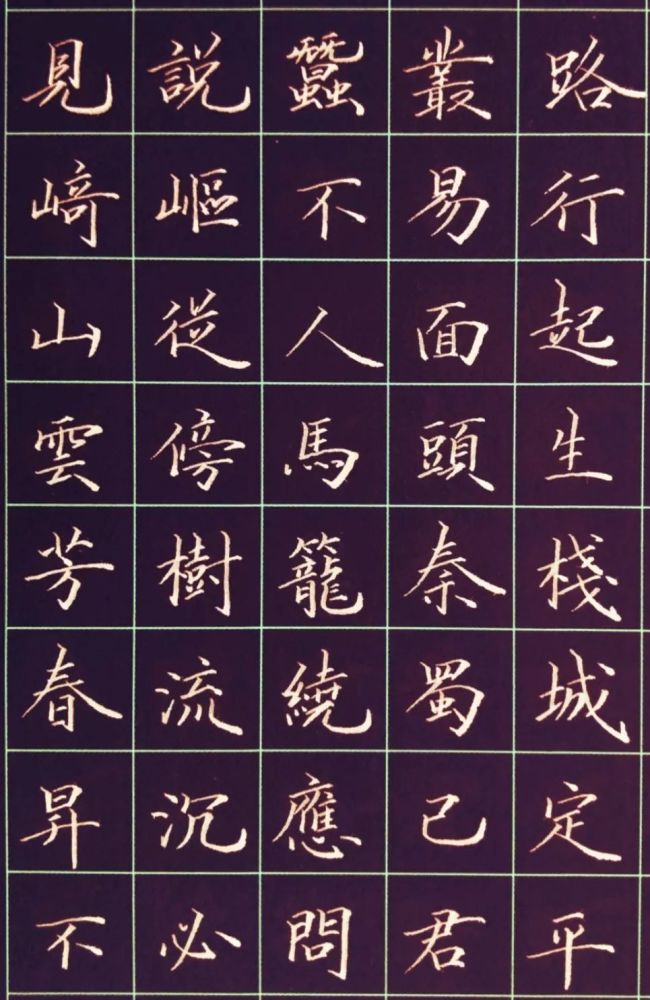 見説蠶叢路
崎嶇不易行
山從人面起
雲傍馬頭生
芳樹籠秦棧
春流繞蜀城
昇沉應已定
不必問君平